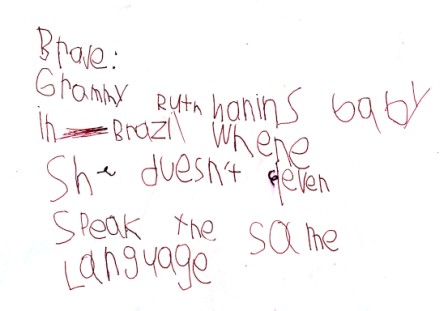 Brave:
Grammy Ruth hanins baby
in Brazil where
She duesn't even
Speak the same
Language